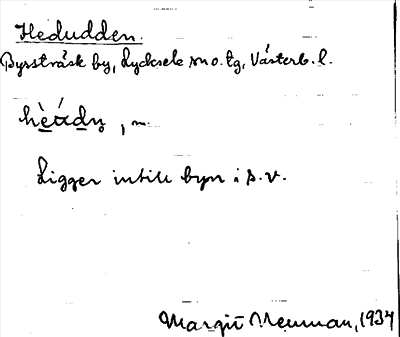 Hedudden.
Byssträsk by, Lycksele sn o. tg, Västerb. l.
, m.
Ligger intill byn i s.v.
Margit Neuman, 1937